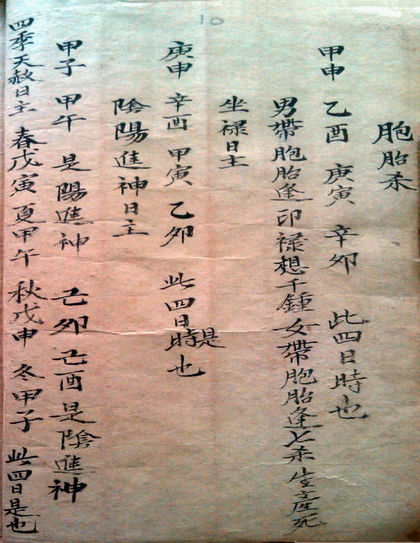 胞胎杀
甲申 乙酉 庚寅 辛卯 此四日時也
男帶胞胎逢印禄想千鍾女帶胞胎逢七杀生産死
坐禄日主
庚申 辛酉 甲寅 乙卯 此四日時是也
陰陽進神日主
甲子 甲午 是陽進神 己卯己酉是陰進神
四季天赦日主 春戊寅 夏甲午 秋戊申 冬甲子 此四日是也
10